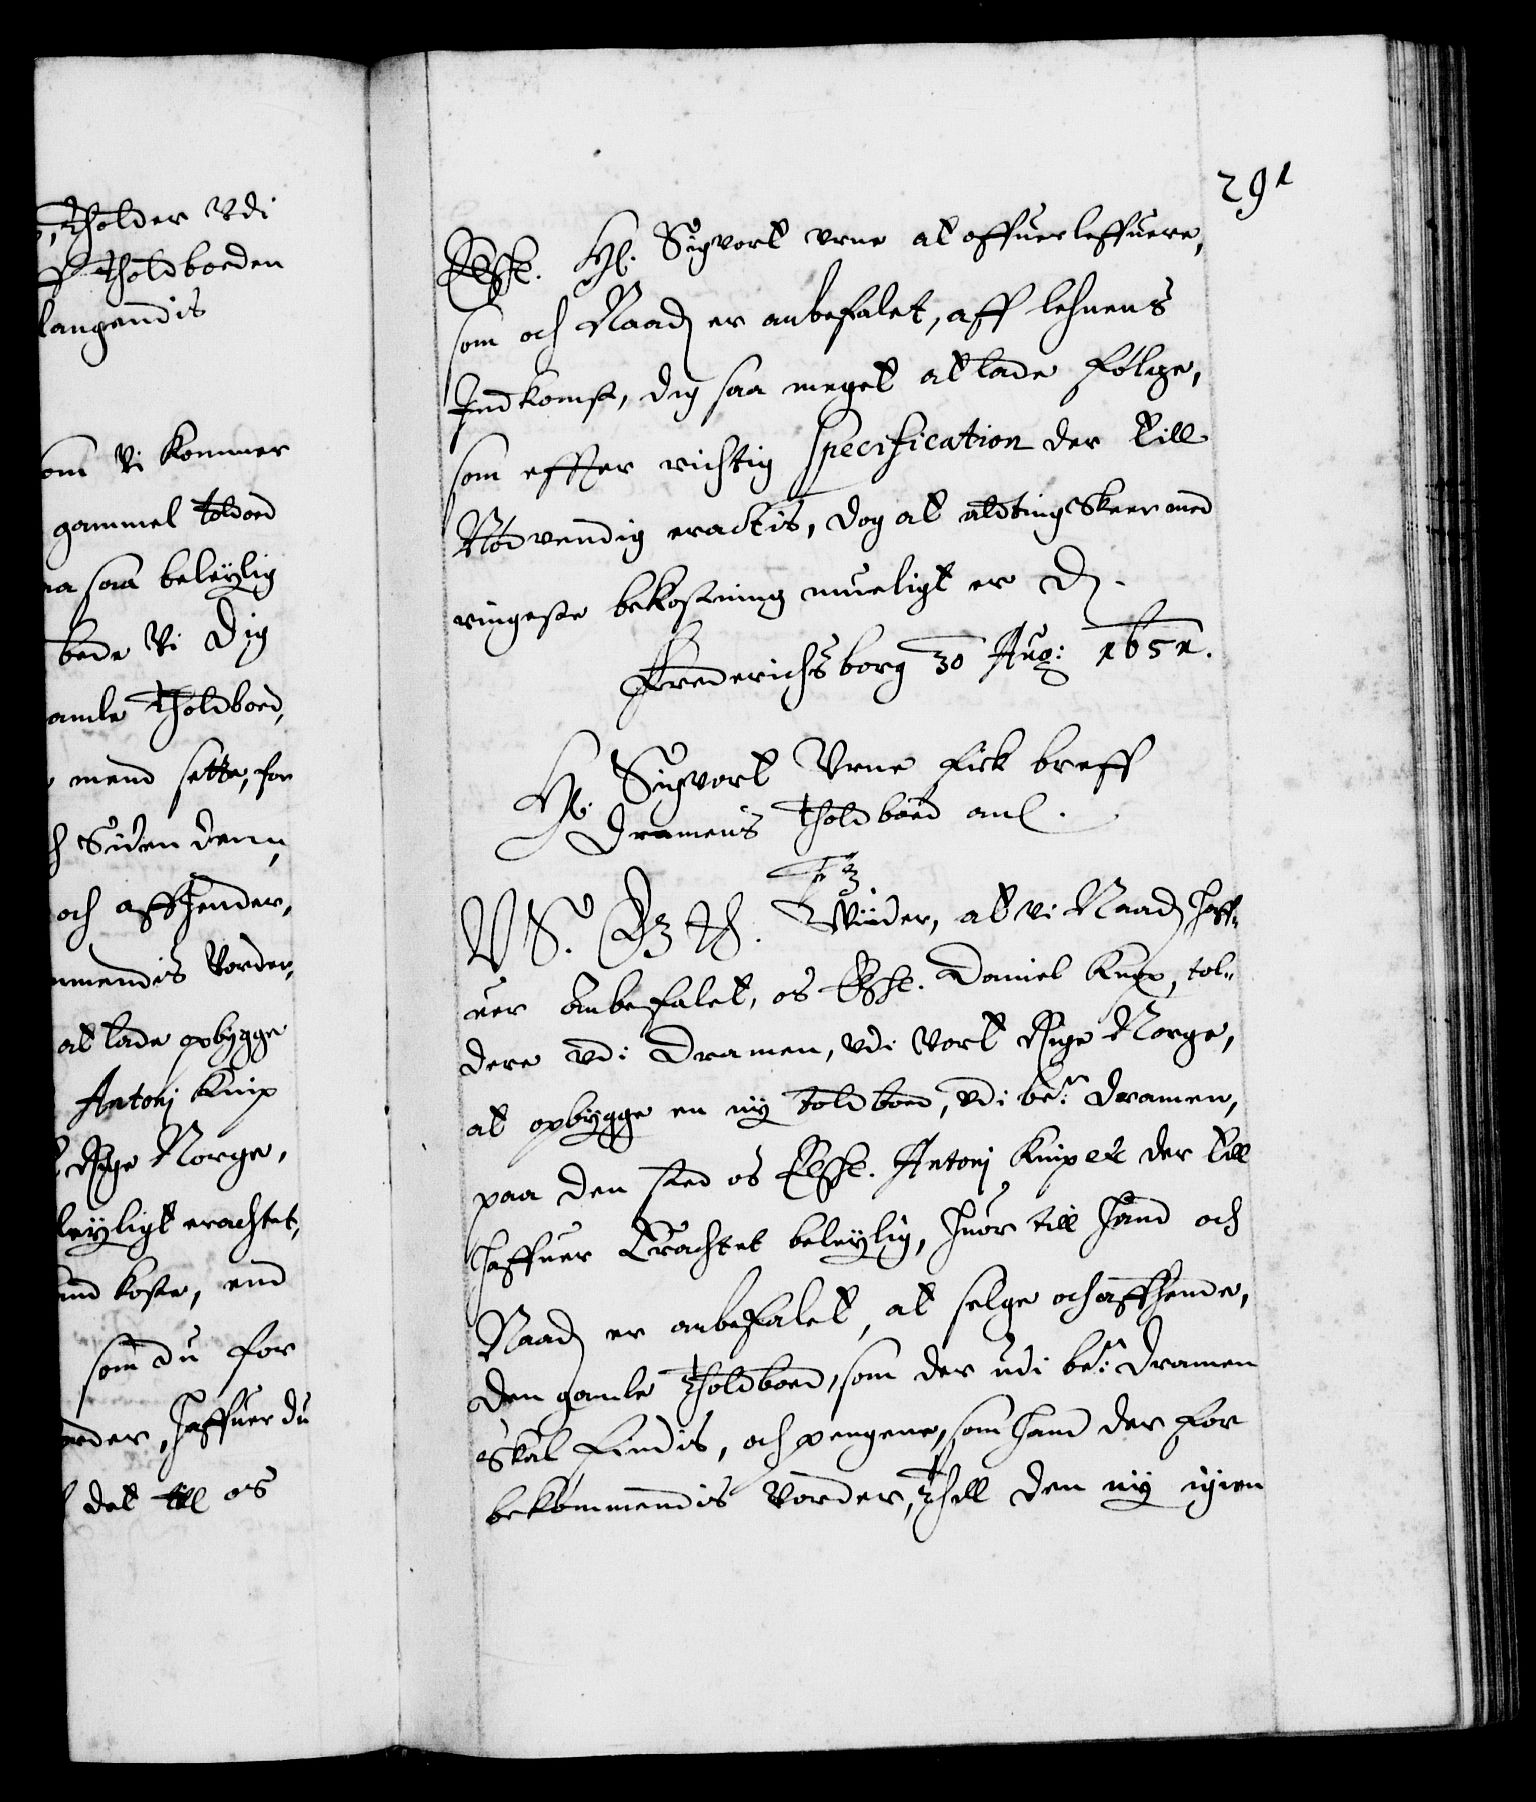 , Tholder Vdi
Tholdboeden
langendis
om Vi kommer
gammel toldbod
saa beleylig
bede Vi Dig
amle Tholdboed,
mend sette, for
Siden denn,
och affhender,
mmendis Vorder,
at lade opbygge
Antonj Knip
Rige Norge,
leyligt erachtet,
und koste, end
som du for
order, haffuer du
det till os
291
Elsske. Hr. Sigvort Vrne at offuerleffuere,
som och Naad er anbefalet, aff lehnens
Indkomst, dig saa meget at lade følge,
som effter richtig specification der till
Nødvendig eractis, dog at aldting skeer med
ringeste bekostning mueligt er D.
Frederichsborg 30 Aug: 1651.
Hr. Sigvort Vrne fick breff
Dramens Tholdboed anl.
F3
V S. G Z Th. Wiider, at vi Naad haff-
uer anbefalet, os Elsske. Daniel Knip, tol-
dere vdi Dramen, vdi Vort Rige Norge,
at opbygge en ny toldboed, vdi be.te Dramen,
paa den sted os Elsske. Antonj Knip etc der till
haffuer Erachtet beleylig, huor till hand och
Naad er anbefalet, at selge och affhende,
den gamle Tholdboed, som der udi be.te Dramen
skal findis, och pengene, som hand der for
bekommendis Vorder, Thill den ny igien